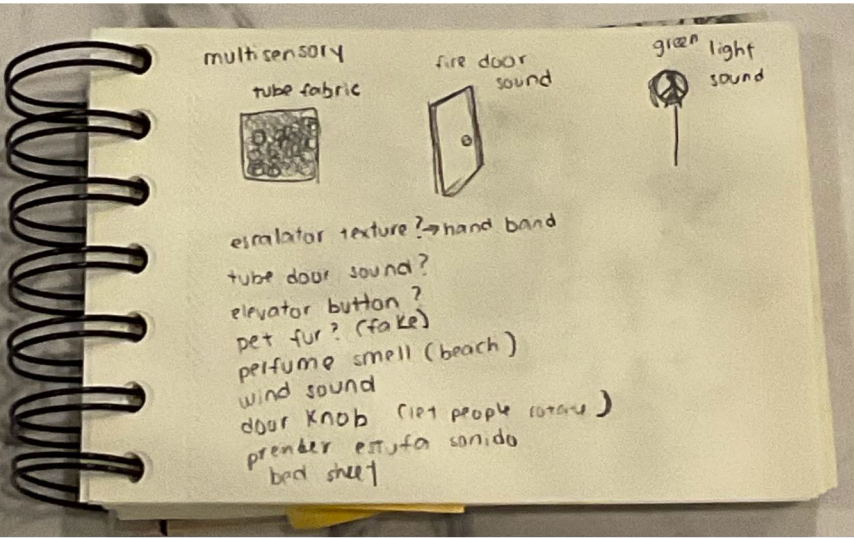 multisensory
tube fabric
fire door
sound
green light
sound
escalator texture?→hand band
tube door sound?
elevator button?
pet fur? (fake)
perfume smell (beach)
wind sound
door knob (let people rotate)
prender estufa sonido
bed sheet